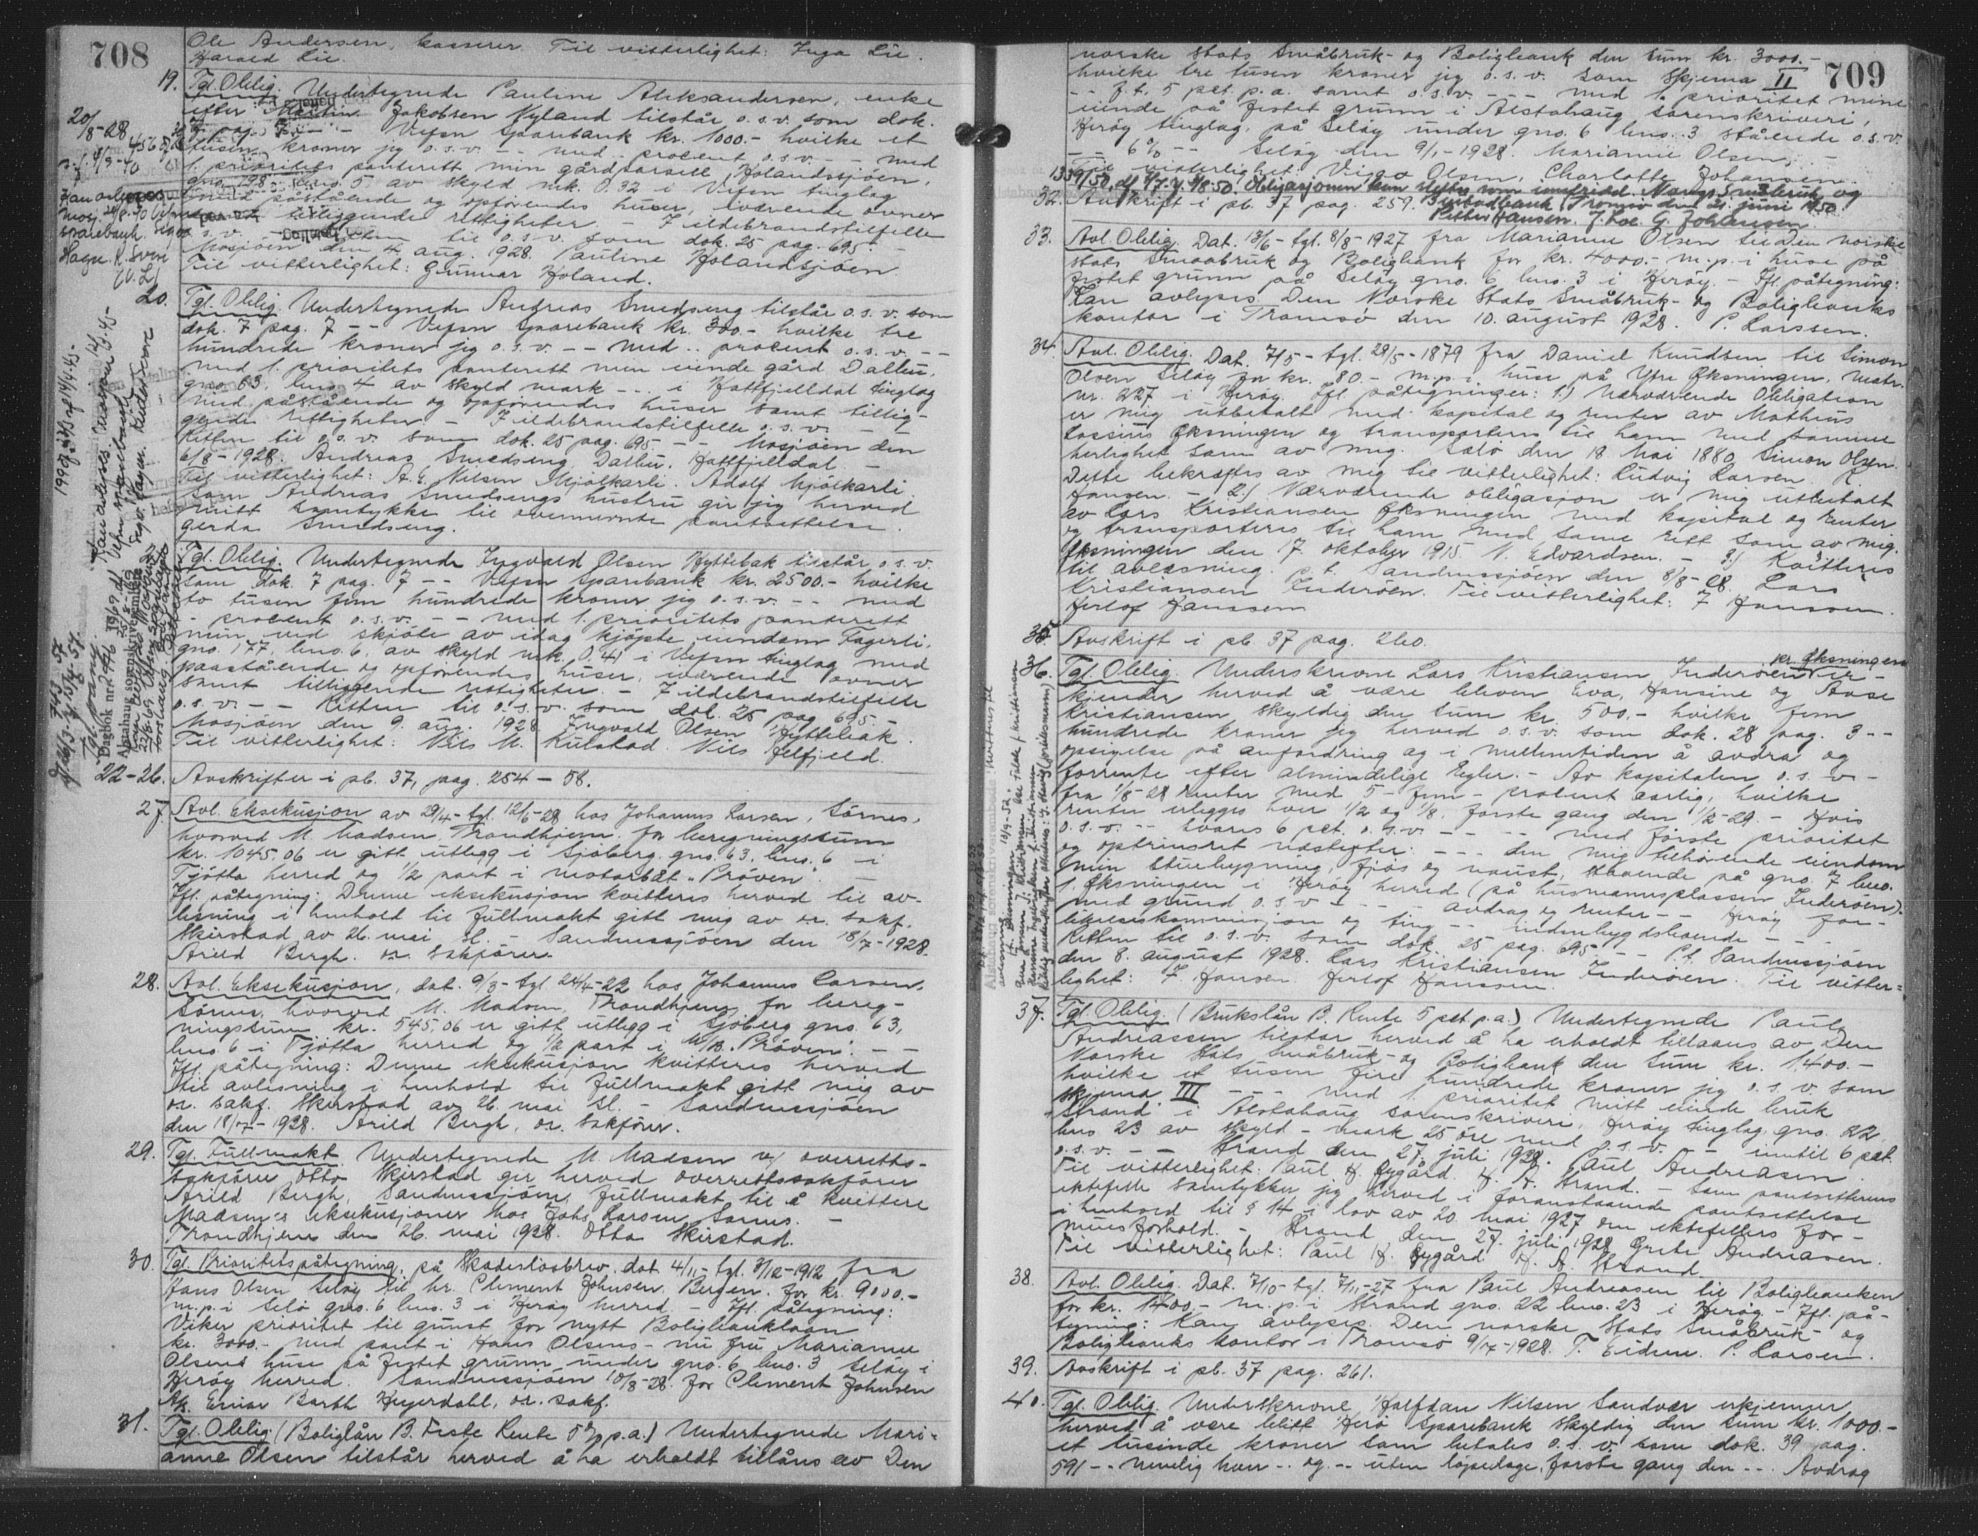 708
Ole Andersen, kasserer. Til vitterlighet: Inga Lie.
Harald Lie.
19. Tgl. Oblig. Undertegnede Pauline Aleksandersen, enke
efter Martin Jakobsen Hyland tilstår o.s.v. som dok.
Vefsn Sparebank kr. 1000.- hvilke et
tusen kroner jeg o.s.v. -- med - procent o.s.v. -- med
1. prioritets panterett min gårdparsell Holandsjøen,
gno. 198 bno. 5 av skyld mrk. 0.32 i Vefsn tinglag
med påstående og opførendes huser, iværende ovner
tilliggende rettigheter. I ildebrandstilfelle
o.s.v. til o.s.v. som dok. 25 pag. 695 --
Mosjøen den 4. aug. 1928. Pauline Holandsjøen.
Til vitterlighet: Gunnar Holand.
20. Tgl. Oblig. Undertegnede Andreas Smedseng tilstår o.s.v. som
dok. 7 pag. 7 -- Vefsn Sparebank kr. 300.- hvilke tre
hundrede kroner jeg o.s.v. -- med .. procent o.s.v. --
med 1. prioritets panterett min eiende gård Dalbu,
gno. 63, bno. 4 av skyld mark -- i Hattfjelldal tinglag
med påstående og opførendes huser samt tillig-
gende rettigheter. - I ildebrandstilfelle o.s.v. --
Retten til o.s.v. som dok. 25 pag. 695 -- Mosjøen den
6/8 - 1928. Andreas Smedseng Dalbu. Hattfjelldal -
Til vitterlighet: A. E. Nilsen Mjølkarli. Adolf Mjølkarli.
Som Andreas Smedsengs hustru gir jeg herved
mitt samtykke til ovennevnte pantsettelse.
Gerda Smedseng.
Tgl. Oblig. Undertegnede Ingvald Olsen Hyttebak tilstår o.s.v.
som dok 7 pag. 7 -- Vefsn Sparebank kr. 2500.- hvilke
to tusen fem hundrede kroner jeg o.s.v. -- med
- procent o.s.v. -- med 1. prioritets panterett
min ved skjøte av idag kjøpte eiendom Fagerli,
gno. 177, bno. 6, av skyld mrk. 0.41 i Vefsn tinglag med
paastående og opførendes huser, iværende ovner
samt tilliggende rettigheter. - I ildebrandstilfelle
o.s.v. -- Retten til o.s.v. som dok. 25 pag. 695 -
Mosjøen den 9. aug. 1928 Ingvald Olsen Hyttebak.
Til vitterlighet: Nils M. Kulstad. Nils Jelfjeld.
22-26. Avskrifter i pb. 37, pag. 254 - 58.
27. Avl. Eksekusjon av 29/4 - tgl. 12/5 - 28 hos Johannes Larsen, Sørnes,
hvorved M. Madsen, Trondhjem, for beregningssum
kr. 1045.06 er gitt utlegg i Sjøberg gno. 63, bno. 6 - i
Tjøtta herred og 1/2 part i motorbåt "Prøven". -
Ifl. påtegning: Denne eksekusjon kvitteres herved til av-
lesning i henhold til fullmakt gitt mig av or. sakf.
Skirstad av 26. mai sl. - Sandnessjøen den 18/7 - 1928.
Arild Bergh. or. sakfører.
28. Avl. Eksekusjon, dat. 9/3 - tgl. 24/4 - 22 hos Johannes Larsen,
Sørnes, hvorved M. Madsen, Trondhjem, for bereg-
ningssum kr. 545.06 er gitt utlegg i Sjøberg gno. 63,
bno. 6 i Tjøtta herred og 1/2 part i M/B. "Prøven". --
Ifl. påtegning: Denne eksekusjon kvitteres herved
til avlesning i henhold til fullmakt gitt mig av
or. sakf. Skirstad av 26. mai sl. - Sandnessjøen
den 18/7 - 1928. Arild Bergh, or. sakfører.
29. Tgl. Fullmakt. Undertegnede M. Madsen v/ overretts-
sakfører Otto Skirstad gir herved overrettssakfører
Arild Bergh, Sandnessjøen, fullmakt til å kvittere
Madsen's eksekusjoner hos Johs. Larsen Sørnes. -
Trondhjem den 26. mai 1928. Otto Skirstad.
30. Tgl. Prioritetspåtegning, på Skadesløsbrev, dat. 4/11 - tgl. 3/12 - 1912 fra
Hans Olsen Seløy til hr. Clement Johnsen, Bergen, for kr. 9000.-
m.p. i Selø gno. 6 bno. 3 i Herøy herred. - Ifl. påtegning:
Viker prioritet til gunst for nytt Boligbanklaan
kr. 3000.- med pant i Hans Olsens - nu fru Marianne
Olsens huse på festet grunn under gno. 6 bno. 3 Seløy i
Herøy herred. Sandnessjøen 10/8-28. for Clement Johnsen
Ak. Einar Barth Heyerdahl, or. sakf.
31. Tgl. Oblig. (Boliglån B. Feste Rente 5 % p.a.) Undertegnede Mari-
anne Olsen tilstår herved å ha erholdt tillåns av Den
709
norske Stats Småbruk- og Boligbank den sum kr. 3000.-
hvilke tre tusen kroner jeg o.s.v. som skjema II
-- f.t. 5 pct. p.a. samt o.s.v. --- med 1. prioritet mine
eiende på festet grunn i Alstahaug sorenskriveri,
Herøy tinglag, på Seløy under gno. 6 bno. 3 stående o.s.v.
-- 6% -- Seløy den 9/1 - 1928. Marianne Olsen. -
Til vitterlighet: Viggo Olsen, Charlotte Johansen.
32. Avskrift i pb. 37 pag. 259.
Obligasjonen kan slettes som innfridd. Norges Småbruk og
Bustadbank Tromsø den 21. juni 1950.
Petter Hansen. J. Loe. G. Johansen.
33. Avl. Oblig. Dat. 13/6 - tgl. 8/8 - 1927 fra Marianne Olsen til Den norske
Stats Smaabruk og Boligbank for kr. 4000.- m.p. i huse på
festet grunn på Seløy gno. 6 bno. 3 i Herøy. - Ifl. påtegning:
Kan avlyses. Den Norske Stats Småbruk- og Boligbanks
kontor i Tromsø den 10. august 1928. P. Larssen.
34. Avl. Oblig. Dat. 7/5 - tgl. 29/5 - 1879 fra Daniel Knudsen til Simon
Olsen Seløy for kr. 80.- m.p. i huse på Ytre Øksningen, matr.
nr. 227 i Herøy. Ifl. påtegninger: 1.) Nærværende Obligation
er mig utbetalt med kapital og renter av Mathias
Lassius Øksningen og transporteres til ham med samme
herlighet som av mig. Sølø den 18 Mai 1880 Simon Olsen.
Dette bekræftes av mig til vitterlighet: Ludvig Larsen. O.
Hansen. - 2.) Nærværende obligasjon er mig utbetalt
av Lars Kristiansen Øksningen med kapital og renter
og transporteres til ham med same rett som av mig.
Øksningen den 17. oktober 1915. N. Edvardsen. - 3.) Kvitteres
til avlesning. p.t. Sandnessjøen den 8/8 - 28. Lars
Kristiansen Inderøen. Til vitterlighet: F. Hanssen.
Herlof Hanssen.
35. Avskrift i pb. 37 pag. 260.
36. Tgl. Oblig. Underskrevne Lars Kristiansen, Inderøen pr. Øksningen er-
kjender herved å være bleven Eva, Hansine og Aase
Kristiansen skyldig den sum kr. 500.- hvilke fem
hundrede kroner jeg herved o.s.v. som dok. 28 pag. 3 --
opsigelse på anfordring og i mellemtiden å avdra og
forrente efter almindelige regler. - Av kapitalen o.s.v. -
fra 1/8-28 renter med 5 - fem - procent aarlig, hvilke
renter erlegges hver 1/2 og 1/8, første gang den 1/2-29 - Hvis
o.s.v. -- svares 6 pct. o.s.v. ---- med første prioritet
og optrinsret utstepter: --- den mig tilhørende eiendom
min stuebygning, fjøs og naust, staaende på gno. 7 bno.
1, Øksningen i Herøy herred (på husmannsplassen Inderøen),
med grund o.s.v. ---- avdrag og renter -- Herøy for-
likelseskommisjon og ting -- indenbygdsboende ---
Retten til o.s.v. som dok 25 pag. 695 -- P.t. Sandnessjøen
den 8. august 1928. Lars Kristiansen Inderøen. Til vitter-
lighet: F. Hansen. Herlof Hanssen.
37. Tgl. Oblig. (Brukslån B. Rente 5 pct p.a.) Undertegnede Paul
Andreassen tilstår herved å ha erholdt tillaans av Den
Norske Stats Småbruk- og Boligbank den sum kr. 1400.-
hvilke et tusen fire hundrede kroner jeg o.s.v. som
skjema III --- med 1. prioritet mitt eiende bruk
Strand i Alstahaug sorenskriveri, Herøy tinglag, gno. 22,
bno 23 av skyld - mark 25 øre med o.s.v. - inntil 6 pct.
o.s.v. -- Strand den 27. juli 1928. Paul Andreasen.
Til vitterlighet: Paul H. Nygård. H. A. Strand. - Som pantsetterens
ektefelle samtykker jeg herved i foranstaaende pantsettelse
i henhold til § 14 i lov av 20. mai 1927 om ektefellers for-
mues forhold. - Strand, den 27. juli 1928 Grete Andreasen.
Til vitterlighet: Paul H. Nygård H. A. Strand.
38. Avl. Oblig. Dat. 7/10 - tgl. 7/11 - 27 fra Paul Andreasen til Boligbanken
for kr. 1400.- m.p. i Strand gno. 22 bno. 23 i Herøy - Ifl. på-
tegning: Kan avlyses. Den norske Stats Småbruk- og
Boligbanks kontor i Tromsø 9/7 - 1928. T. Eidem. P. Larsen.
39. Avskrift i pb. 37 pag. 261.
40. Tgl. Oblig. Underskrevne Halfdan Nilsen Sandvær erkjenner
herved å være blitt Herø Sparebank skyldig den sum kr. 1000.-
et tusinde kroner som betales o.s.v. som dok. 39 pag.
591 -- nemlig hver -- og -- uten løpedage, første gang den -- Avdrag